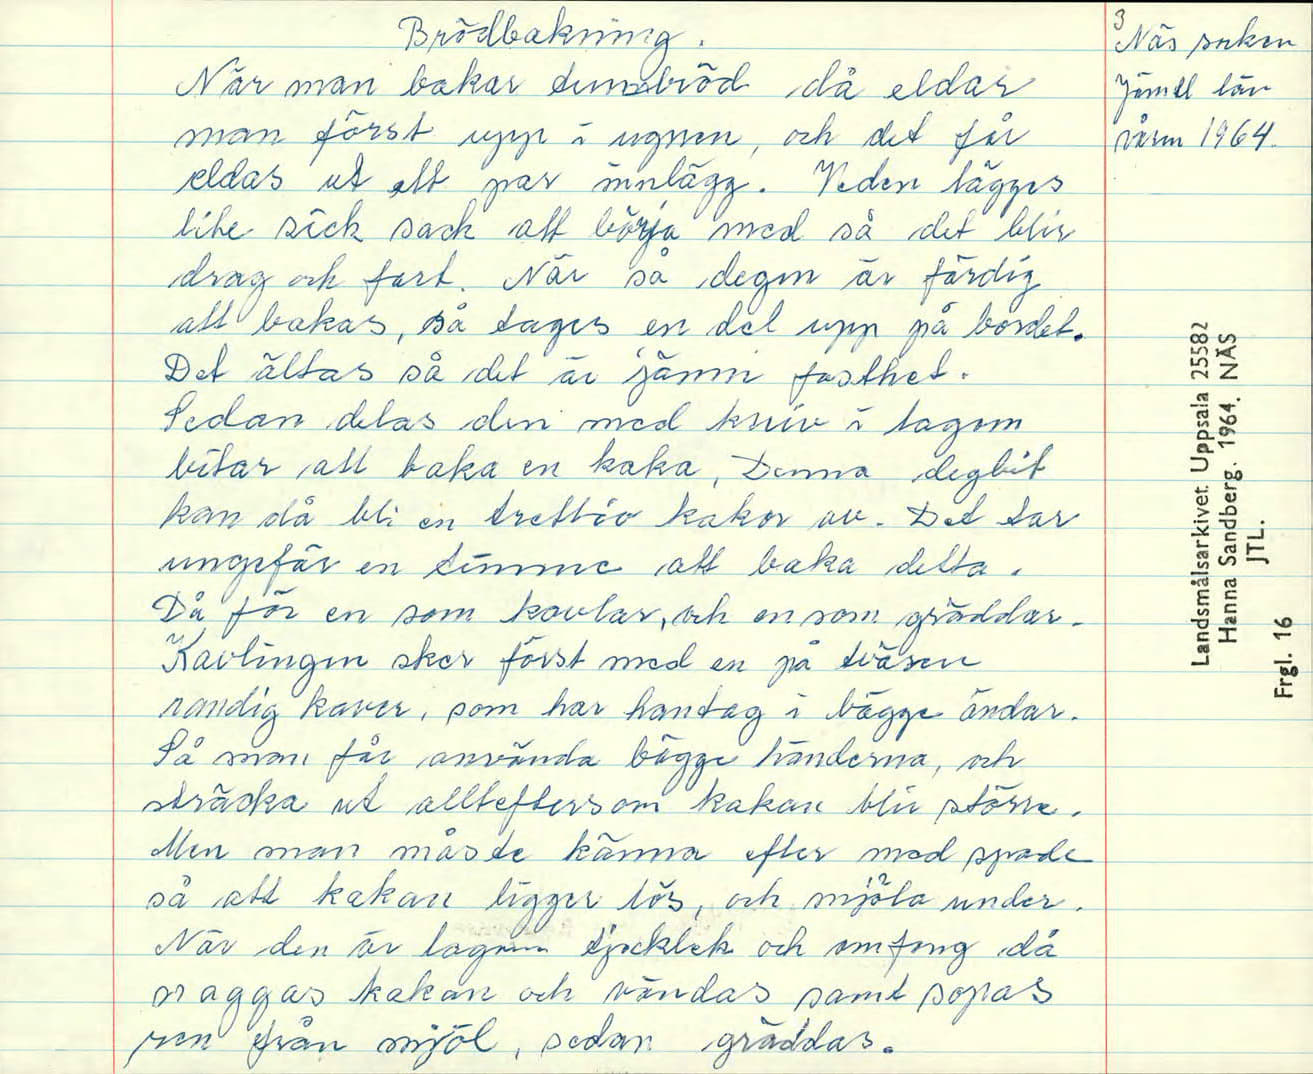 Brödbakning.
När man bakar tunnbröd då eldar
man först upp i ugnen, och det får
eldas ut ett par innlägg. Veden lägges
like sick sack att börja med så det blir
drag och fart. När så degen är färdig
att bakas, så tages en del upp på bordet.
Det ältas så det är jämn fasthet.
Sedan delas den med kniv i lagom
bitar att baka en kaka, Denna degbit
kan då bli en trettio kakor av. Det tar
ungefär en timme att baka detta.
Då för en som kavlar, och en som gräddar.
Kavlingen sker först med en på tväsen
randig kaver, som har hantag i bägge ändar.
Så man får använda bägge händerna, och
sträcka ut allteftersom kakan blir större.
Men man måste känna efter med spade
så att kakan ligger lös, och mjöla under.
När den är lagom tjocklek och omfong då
naggas kakan och vändas samt sopas
ren från mjöl, sedan gräddas.
3
Näs socken
Jämtl län
våren 1964.
Landsmålsarkivet Uppsala 25582
Hanna Sandberg. 1964. NÄS
JTL.
Frgl. 16